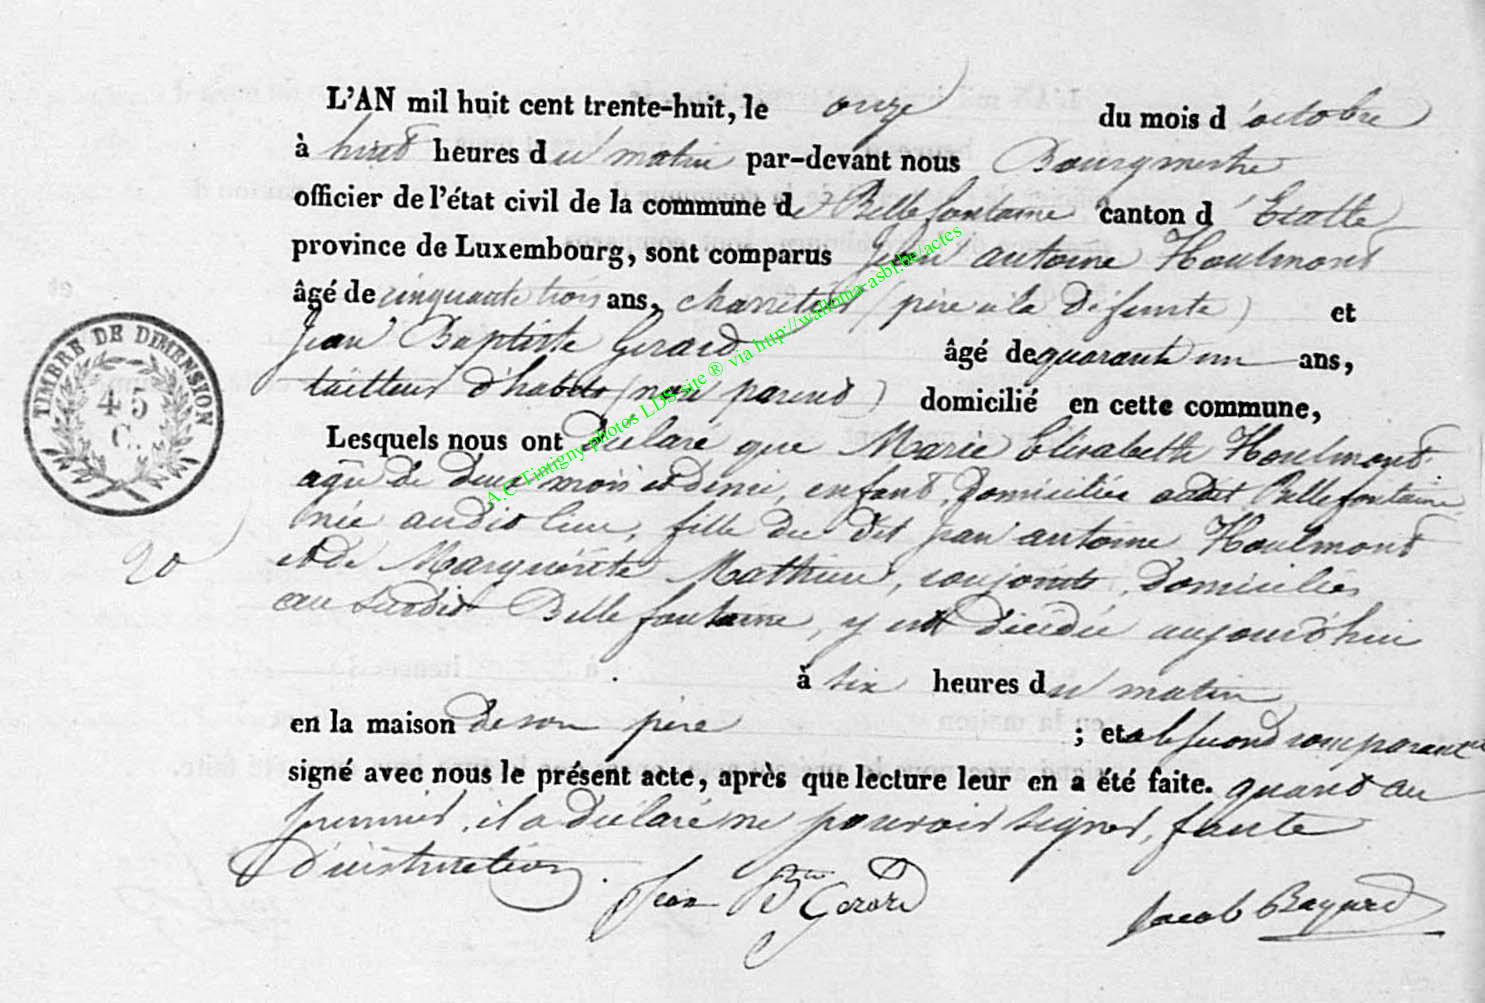 L'AN mil huit cent trente-huit, le onze du mois d'octobre
à huit heures du matin par-devant nous Bourgmestre
officier de l'état civil de la commune de Bellefontaine canton d'Etalle
province de Luxembourg, sont comparus Jean antoine Houlmont
âgé de cinquante trois ans, charretier (père à la défunte) et
Jean Baptiste Gerard âgé de quarante un ans,
tailleur d'habits (non parent) domicilié en cette commune,
Lesquels nous ont déclaré que Marie Elisabeth Houlmont
agée de deux mois et demi, enfant, domiciliée audit Bellefontaine
née audit lieu, fille du dit Jean antoine Houlmont
et de Marguerite Mathieu, conjoints, domiciliés
au susdit Bellefontaine, y est décédée aujourd'hui
à six heures du matin
en la maison de son père ; et a le second comparant
signé avec nous le présent acte, après que lecture leur en a été faite. quant au
premier, il a déclaré ne pouvoir signer, faute
d'instruction.
Jean Bte Gerard
Jacob Bayard
TIMBRE DE DIMENSION
45
C.
20
A.C Tintigny photos LDS site ® via http://wallonia-asbl.be/actes